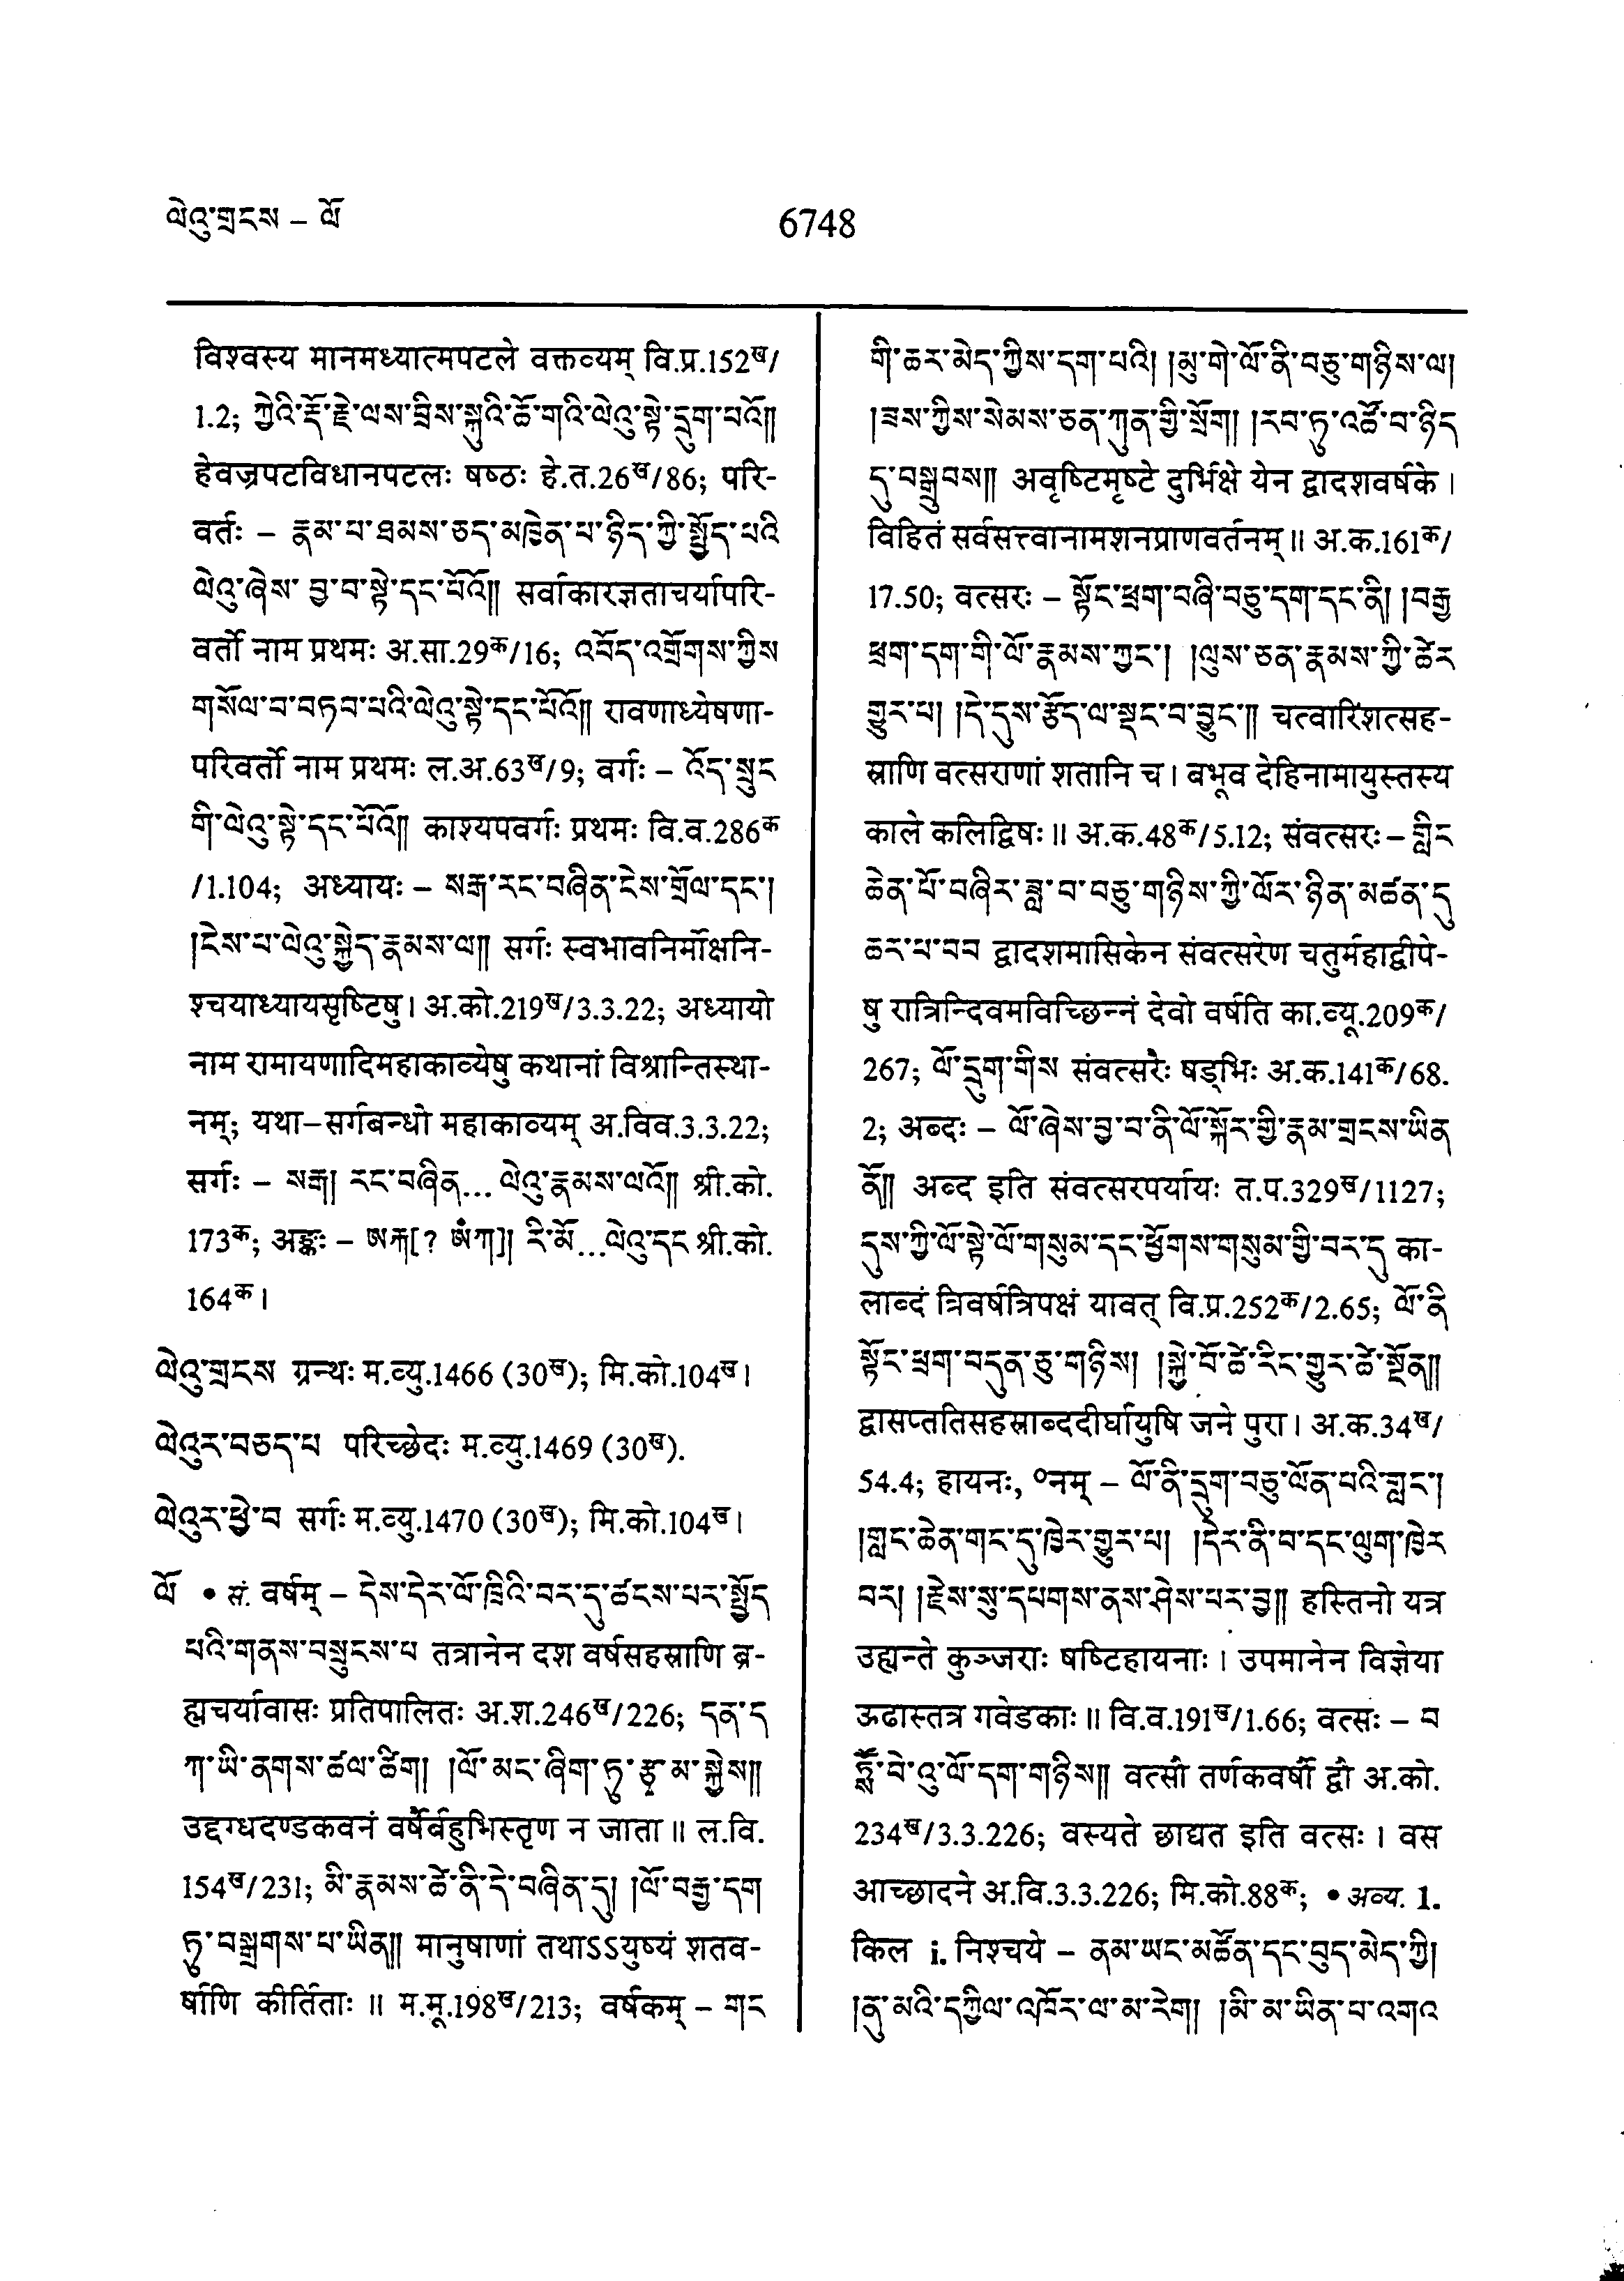 ལེའུ་གྲངས – ལོ
6748
विश्वस्य मानमध्यात्मपटले वक्तव्यम् वि.प्र.152ख/
1.2; ཀྱེའི་རྡོ་རྗེ་ལས་བྲིས་སྐུའི་ཆོ་གའི་ལེའུ་སྟེ་དྲུག་པའོ༎
हेवज्रपटविधानपटलः षष्ठः हे.त.26ख/86; परि-
वर्तः – རྣམ་པ་ཐམས་ཅད་མཁྱེན་པ་ཉིད་ཀྱི་སྤྱོད་པའི
ལེའུ་ཞེས་ བྱ་བ་སྟེ་དང་པོའོ༎ सर्वाकारज्ञताचर्यापरि-
वर्तो नाम प्रथमः अ.सा.29क/16; འབོད་འགྲོགས་ཀྱིས
གསོལ་བ་བཏབ་པའི་ལེའུ་སྟེ་དང་པོའོ༎ रावणाध्येषणा-
परिवर्तो नाम प्रथमः ल.अ.63ख/9; वर्गः – འོད་སྲུང
གི་ལེའུ་སྟེ་དང་པོའོ༎ काश्यपवर्गः प्रथमः वि.व.286क
/1.104; अध्यायः – སརྒ་རང་བཞིན་ངེས་གྲོལ་དང་།
།ངེས་པ་ལེའུ་སྐྱེད་རྣམས་ལ༎ सर्गः स्वभावनिर्मोक्षनि-
श्चयाध्यायसृष्टिषु। अ.को.219ख/3.3.22; अध्यायो
नाम रामायणादिमहाकाव्येषु कथानां विश्रान्तिस्था-
नम्; यथा–सर्गबन्धो महाकाव्यम् अ.विव.3.3.22;
सर्गः – སརྒ། རང་བཞིན... ལེའུ་རྣམས་ལའོ༎ श्री.को.
173क; अङ्कः – ཨརྐ[? ཨཾཀ]། རི་མོ...ལེའུ་དང श्री.को.
164क।
ལེའུ་གྲངས ग्रन्थः म.व्यु.1466 (30ख); मि.को.104ख।
ལེའུར་བཅད་པ परिच्छेदः म.व्यु.1469 (30ख).
ལེའུར་ཕྱེ་བ सर्गः म.व्यु.1470 (30ख); मि.को.104ख।
ལོ • सं. वर्षम् – དེས་དེར་ལོ་ཁྲིའི་བར་དུ་ཚངས་པར་སྤྱོད
པའི་གནས་བསྲུངས་པ तत्रानेन दश वर्षसहस्राणि ब्र-
ह्मचर्यावासः प्रतिपालितः अ.श.246ख/226; དན་ད
ཀ་ཡི་ནགས་ཚལ་ཚིག། །ལོ་མང་ཞིག་ཏུ་རྩྭ་མ་སྐྱེས༎
उद्दग्धदण्डकवनं वर्षैर्बहुभिस्तृण न जाता॥ ल.वि.
154ख/231; མི་རྣམས་ཚེ་ནི་དེ་བཞིན་དུ། །ལོ་བརྒྱ་དག
ཏུ་བསྒྲགས་པ་ཡིན༎ मानुषाणां तथाऽऽयुष्यं शतव-
र्षाणि कीर्तिताः॥ म.मू.198ख/213; वर्षकम् – གང
གི་ཆར་མེད་ཀྱིས་དག་པའི། །མུ་གེ་ལོ་ནི་བཅུ་གཉིས་ལ།
།ཟས་ཀྱིས་སེམས་ཅན་ཀུན་གྱི་སྲོག། །རབ་ཏུ་འཚོ་བ་ཉིད
དུ་བསྒྲུབས༎ अवृष्टिमृष्टे दुर्भिक्षे येन द्वादशवर्षके।
विहितं सर्वसत्त्वानामशनप्राणवर्तनम्॥ अ.क.161क/
17.50; वत्सरः – སྟོང་ཕྲག་བཞི་བཅུ་དག་དང་ནི། །བརྒྱ
ཕྲག་དག་གི་ལོ་རྣམས་ཀྱང་། །ལུས་ཅན་རྣམས་ཀྱི་ཚེར
གྱུར་པ། །དེ་དུས་རྩོད་ལ་སྡང་བ་བྱུང་༎ चत्वारिंशत्सह-
स्राणि वत्सराणां शतानि च। बभूव देहिनामायुस्तस्य
काले कलिद्विषः॥ अ.क.48क/5.12; संवत्सरः – གླིང
ཆེན་པོ་བཞིར་ཟླ་བ་བཅུ་གཉིས་ཀྱི་ལོར་ཉིན་མཚན་དུ
ཆར་པ་བབ द्वादशमासिकेन संवत्सरेण चतुर्महाद्वीपे-
षु रात्रिन्दिवमविच्छिन्नं देवो वर्षति का.व्यू.209क/
267; ལོ་དྲུག་གིས संवत्सरैः षड्भिः अ.क.141क/68.
2; अब्दः – ལོ་ཞེས་བྱ་བ་ནི་ལོ་སྐོར་གྱི་རྣམ་གྲངས་ཡིན
ནོ༎ अब्द इति संवत्सरपर्यायः त.प.329ख/1127;
དུས་ཀྱི་ལོ་སྟེ་ལོ་གསུམ་དང་ཕྱོགས་གསུམ་གྱི་བར་དུ का-
लाब्दं त्रिवर्षत्रिपक्षं यावत् वि.प्र.252क/2.65; ལོ་ནི
སྟོང་ཕྲག་བདུན་ཅུ་གཉིས། །སྐྱེ་བོ་ཚེ་རིང་གྱུར་ཚེ་སྔོན༎
द्वासप्ततिसहस्राब्ददीर्घायुषि जने पुरा। अ.क.34ख/
54.4; हायनः, ॰नम् – ལོ་ནི་དྲུག་བཅུ་ལོན་པའི་གླང་།
།གླང་ཆེན་གང་དུ་ཁྱེར་གྱུར་པ། །དེར་ནི་བ་དང་ལུག་ཁྱེར
བར། །རྗེས་སུ་དཔགས་ནས་ཤེས་པར་བྱ༎ हस्तिनो यत्र
उह्यन्ते कुञ्जराः षष्टिहायनाः। उपमानेन विज्ञेया
ऊढास्तत्र गवेडकाः॥ वि.व.191ख/1.66; वत्सः – བ
ཏྶོ་བེ་འུ་ལོ་དག་གཉིས༎ वत्सौ तर्णकवर्षौ द्वौ अ.को.
234ख/3.3.226; वस्यते छाद्यत इति वत्सः। वस
आच्छादने अ.वि.3.3.226; मि.को.88क; • अव्य. 1.
किल i. निश्चये – ནམ་ཡང་མཚོན་དང་བུད་མེད་ཀྱི།
།ནུ་མའི་དཀྱིལ་འཁོར་ལ་མ་རེག། །མི་མ་ཡིན་པ་འགའ